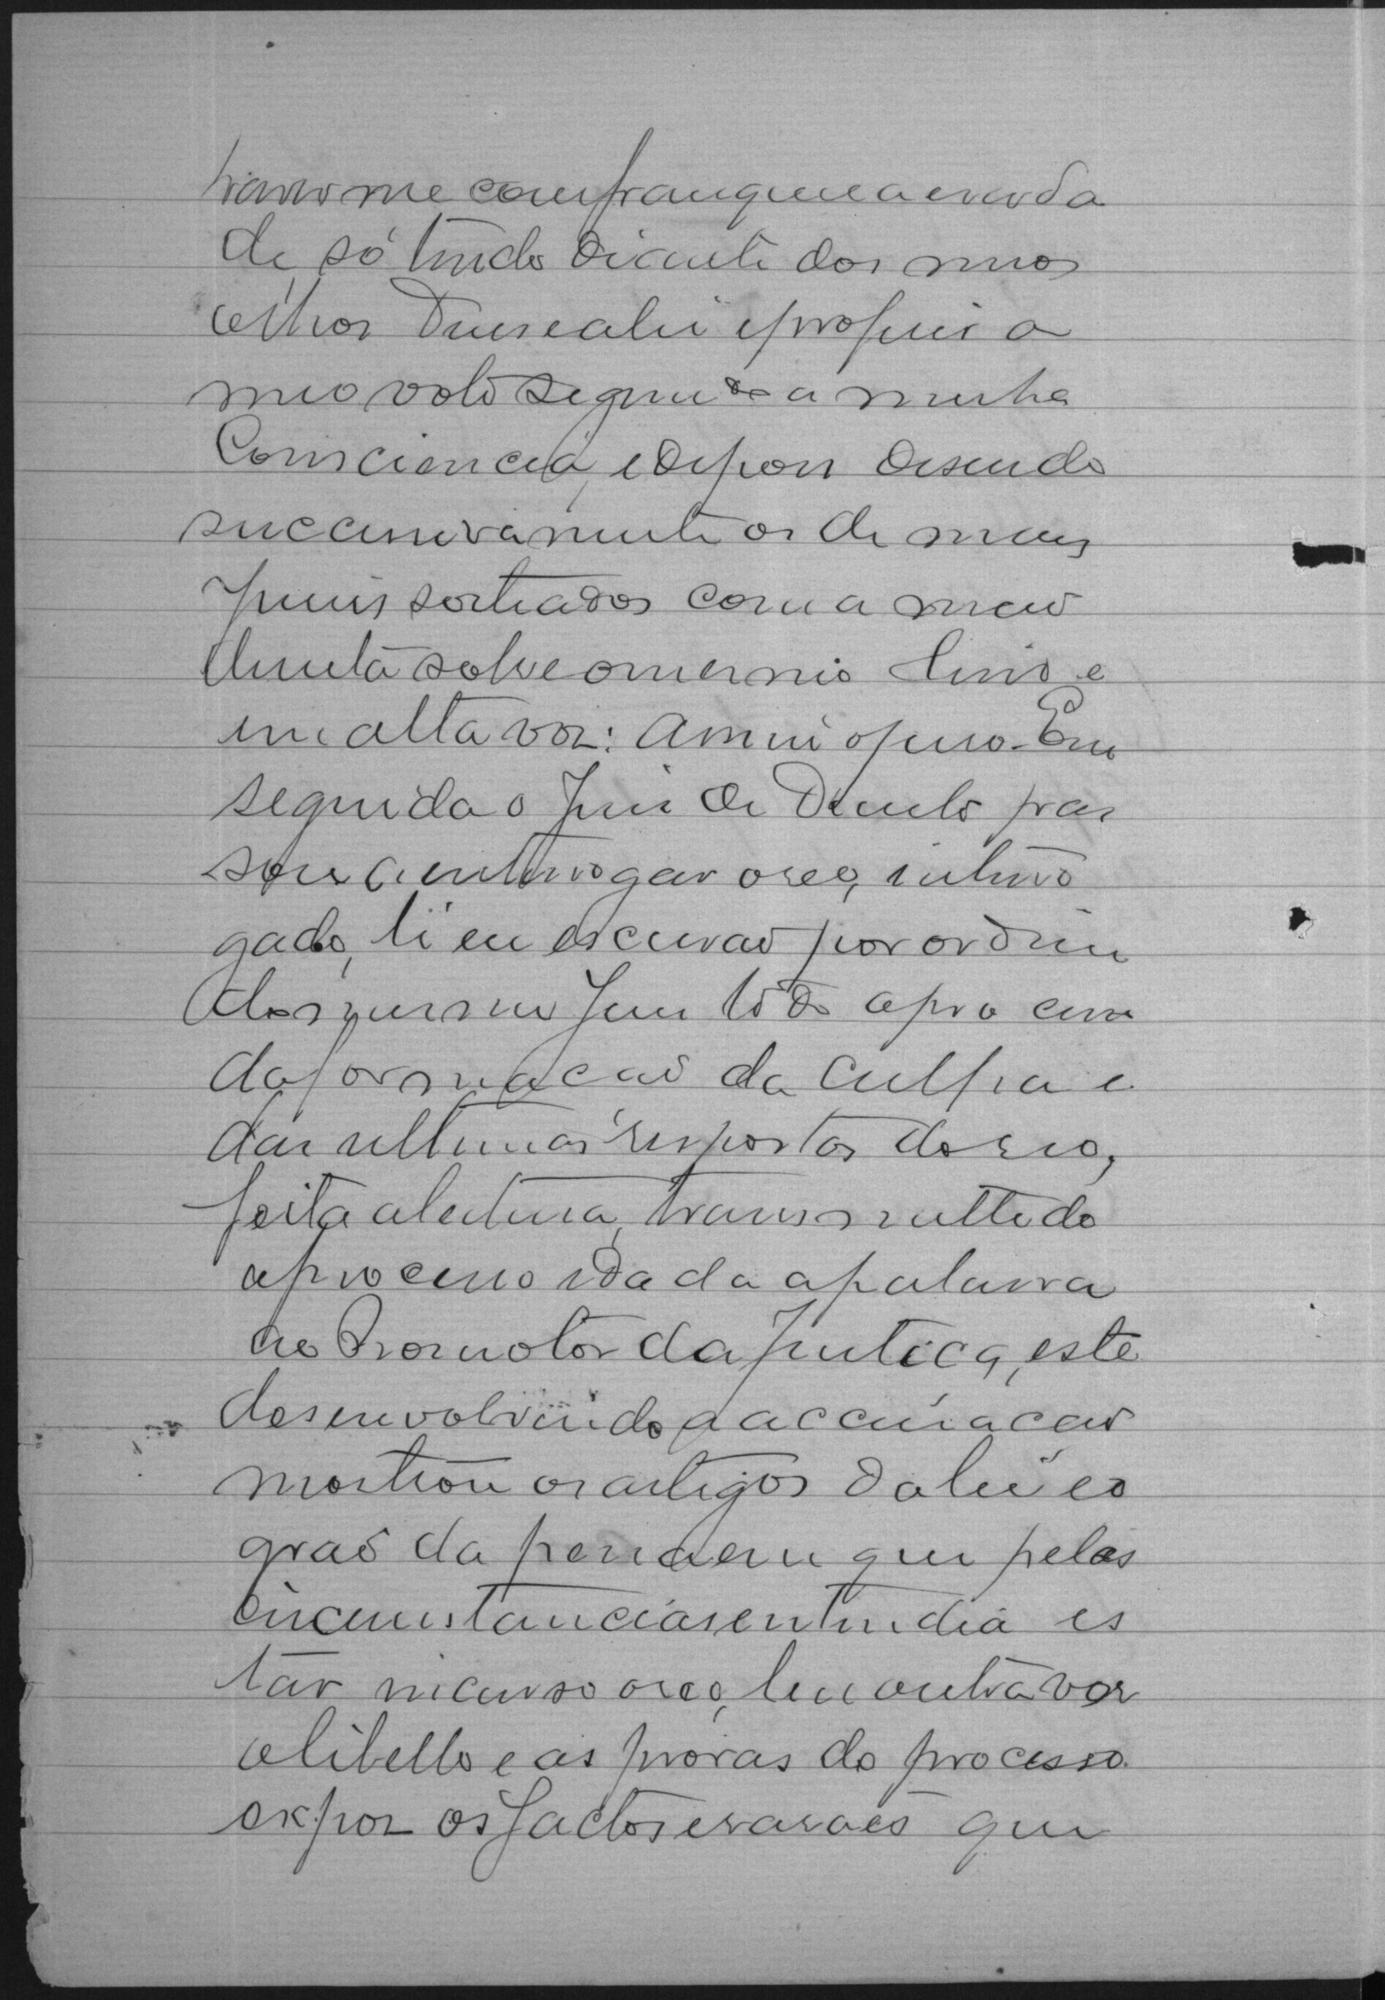 trar-me com franqueza e verda
de, só tendo diante dos meus
olhos Deus e a lei e proferir o
meu voto segundo a minha
Consciencia, e depois disendo
successivamente os de mais
juises sorteados com a mão
direita sobre o mesmo livro e
em alta voz: assim o juro. Em
seguida o Juiz de Direito pas
sou a enterrogar o reo, interro
gado, li eu escrivaõ por ordem
do mesmo Juiz todo o processo
da formaçaõ da culpa e
das ultimas respostas do reo,
feita a leitura, transmettido
o processo e dada a palavra
ao Promotor da Justiça, este
desenvolvendo a accusaçaõ
mostrou os artigos da lei e o
graõ da pena em que pelas
circunstancias entendia es
tar incurso o reo, leu outra vez
o libello e as provas do processo
expoz os factos e rasoẽs que